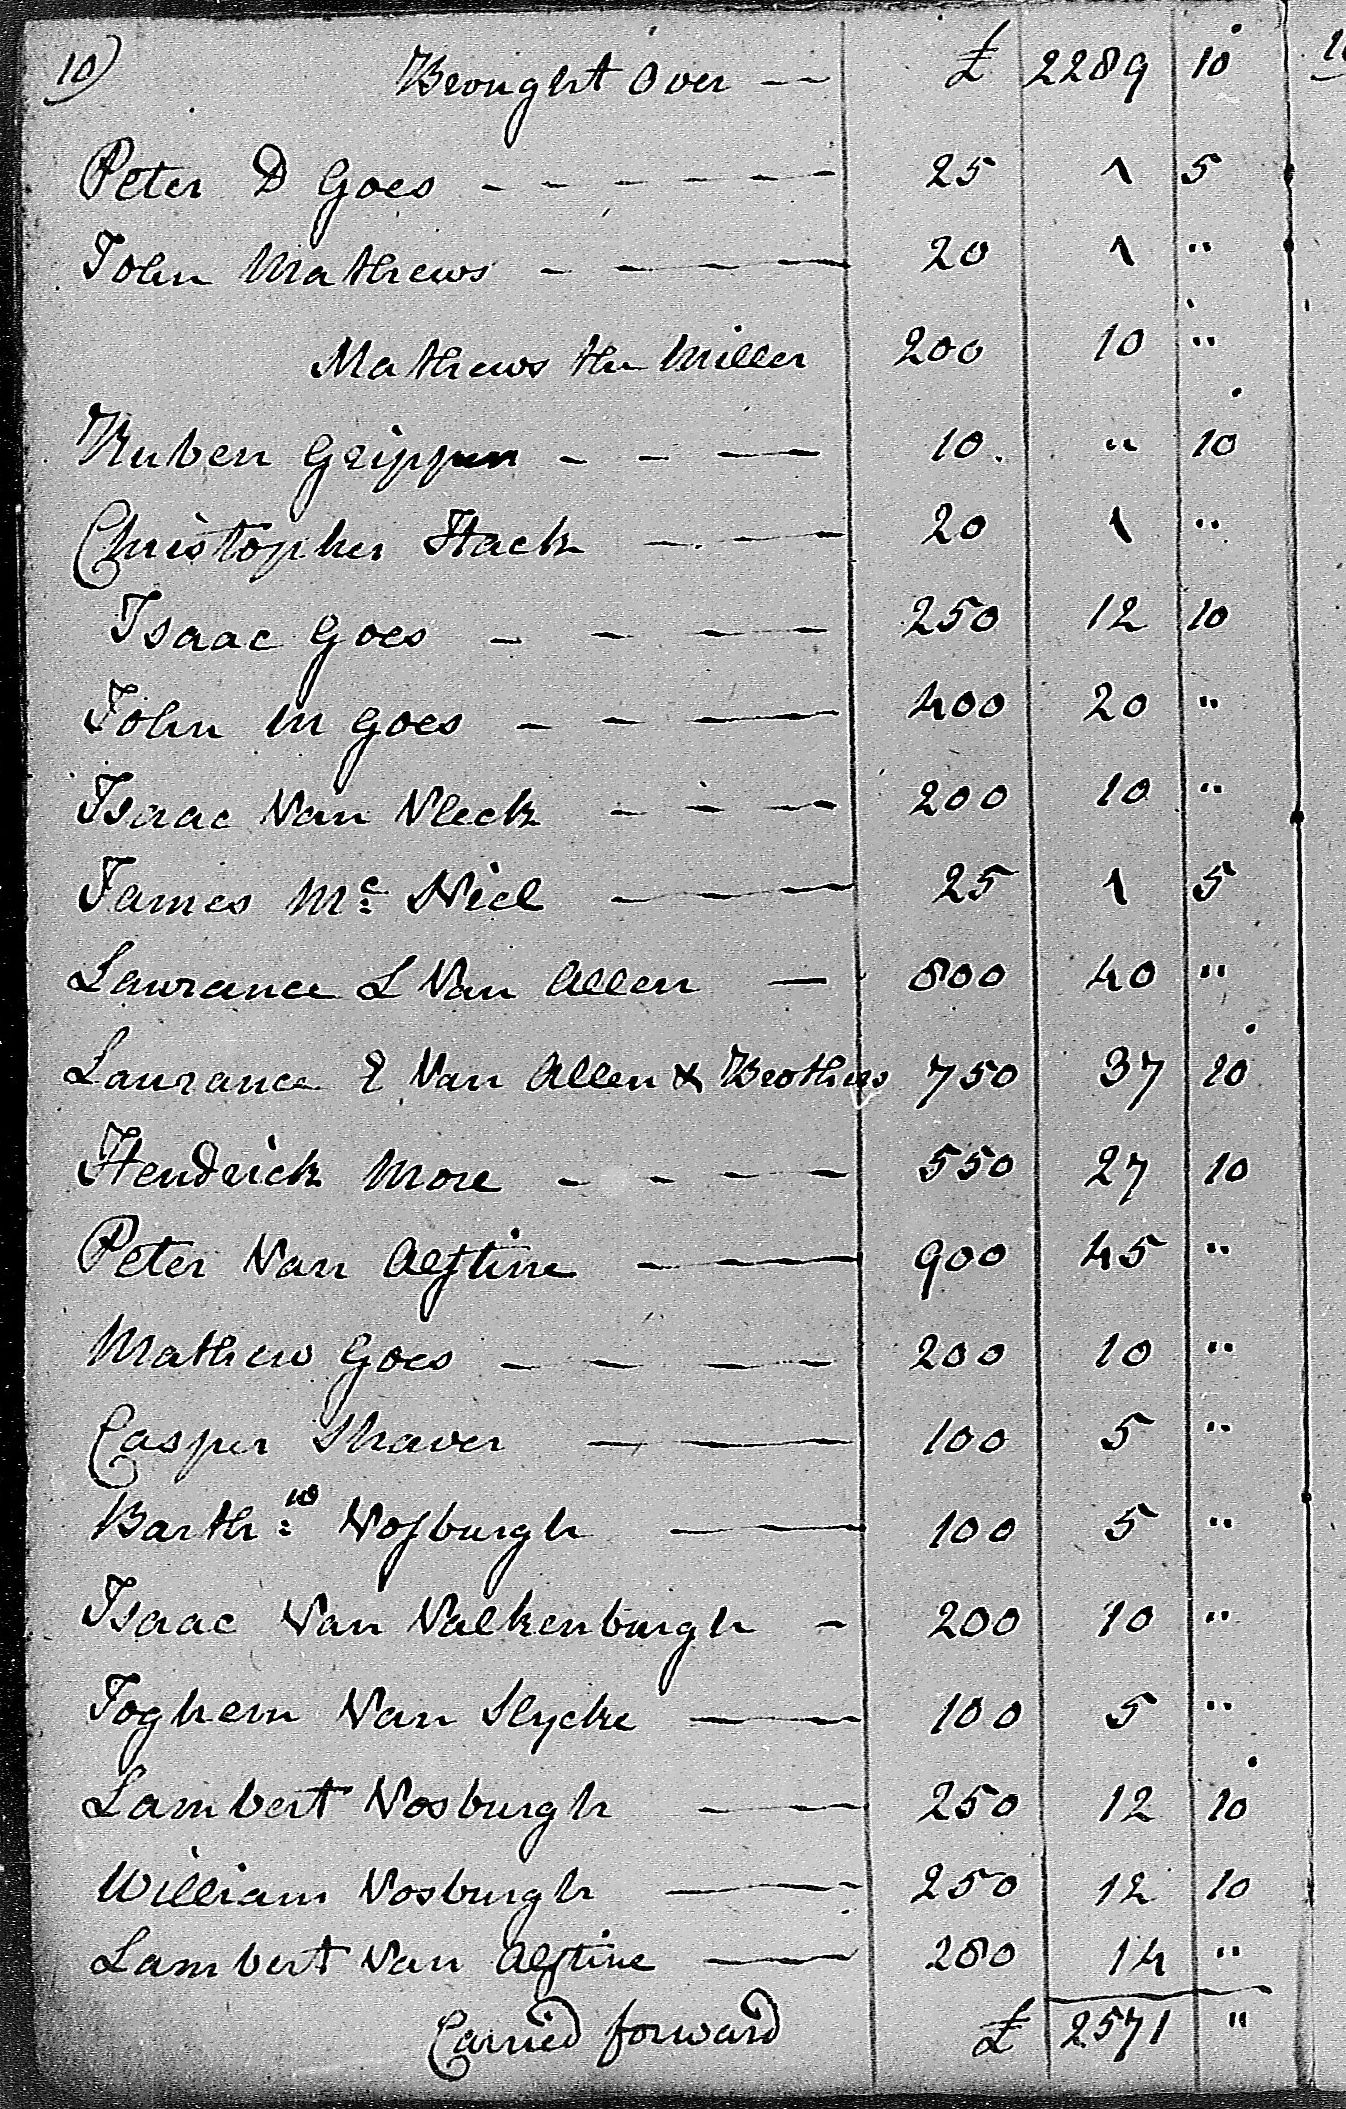 10) Brought Over — — £ 2289 10
Peter D Goes - - - - - - 25 1 5
John Mathews - - - - 20 1 "
Mathews the Miller 200 10 "
Ruben Grippen - - - 10. " 10
Christopher Hack - - - 20 1 "
Isaac Goes - - - - 250 12 10
John M Goes - - - - 400 20 "
Isaac Van Vleck - - - 200 10 "
James Mc: Niel - - - 25 1 5
Lawrance L Van Allen — 800 40 "
Laurance E Van Allen & Brothers 750 37 10
Hendrick More - - - - 550 27 10
Peter Van Alstine - - - 900 45 "
Mathew Goes - - - - 200 10 "
Casper Shaver - - - 100 5 "
Barth:w Vosburgh - - 100 5 "
Isaac Van Valkenburgh - 200 10 "
Joghem Van Slycke - - 100 5 "
Lambert Vosburgh - - 250 12 10
William Vosburgh - - 250 12 10
Lambert Van Alstine - - 280 14 "
Carried forward £ 2571 "